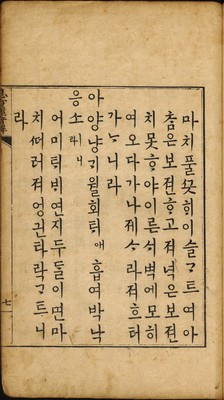 마치풀끗히이슬ᄀᆞ트여아
ᄎᆞᆷ은보젼ᄒᆞ고져녁은보젼
치못ᄒᆞ야이른ᄉᆡ벽에모히
여오다가나제ᄂᆞ라져흐터
가ᄂᆞ니라
아양냥ᄀᆡ월회틱애흡여박낙
응소래니
어미틱빈연지두둘이면마
치ᄯᅥ러져엉긘타락ᄀᆞ트니
라
七